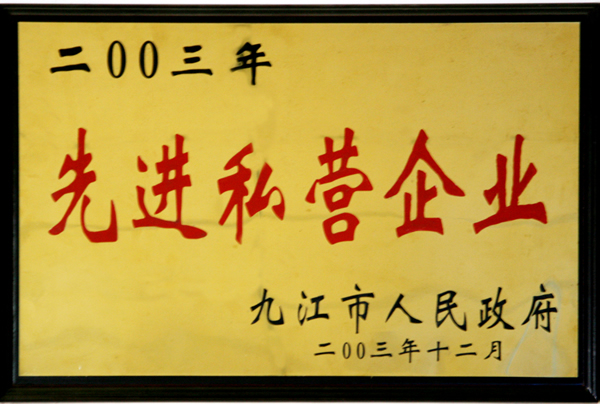 二00三年
先进私营企业
九江市人民政府
二00三年十二月